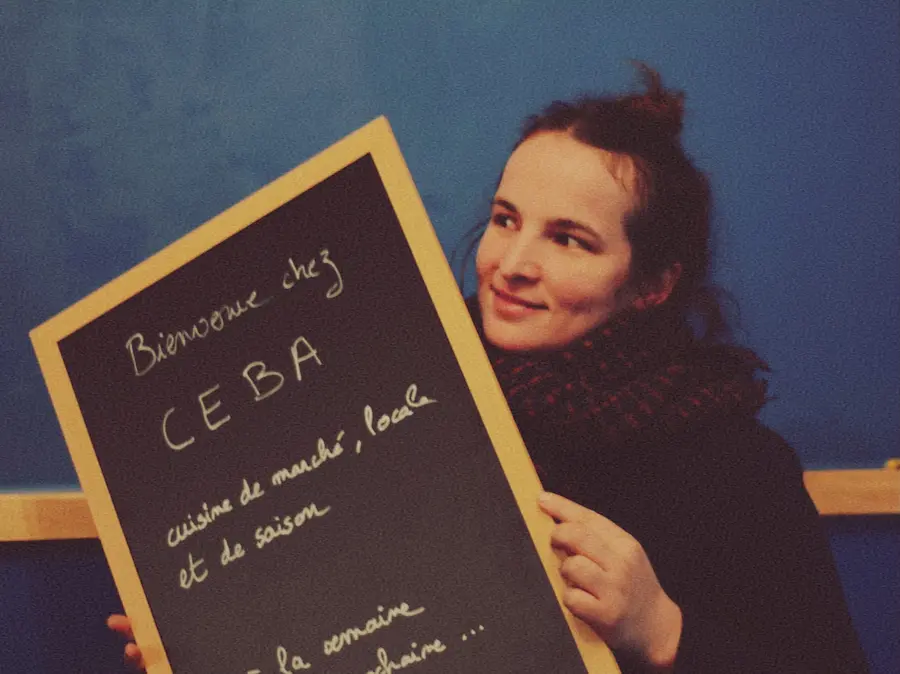 Bienvenue chez
CEBA
cuisine de marché, locale
et de saison
la semaine
...